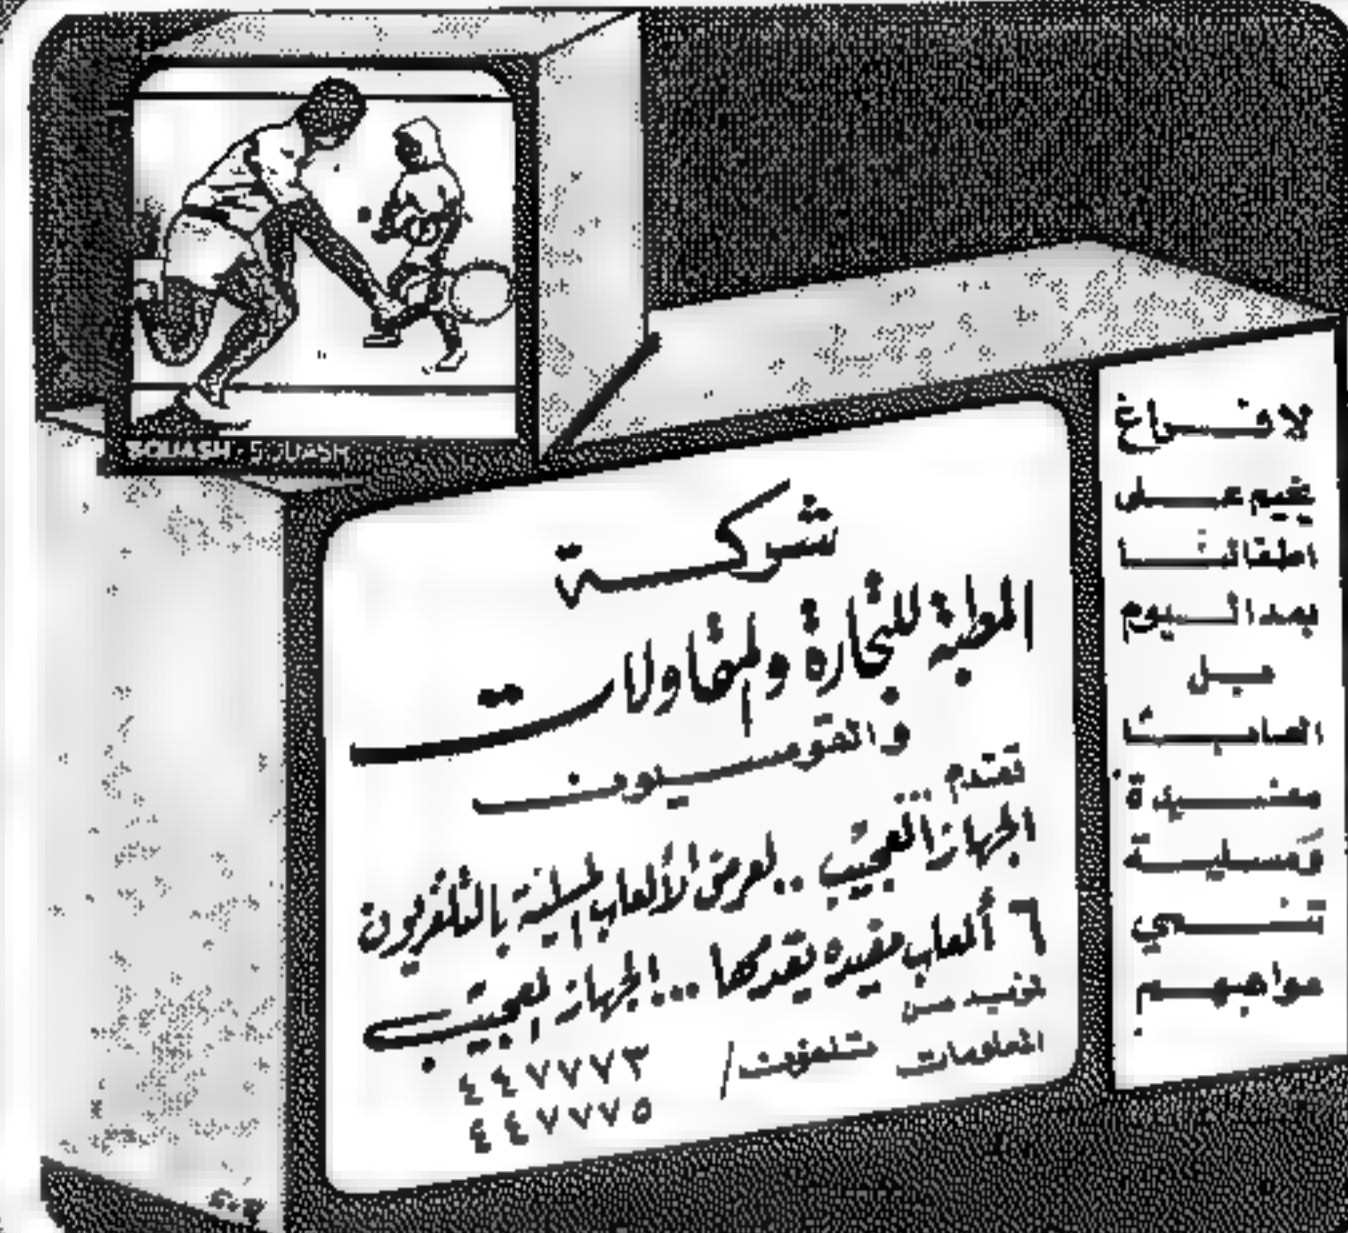 SQUASH · SQUASH
شركة
المطبة للتجارة والمقاولات
والقومسيون
تقدم ...
الجهاز العجيب .. لعرض الألعاب المسلية بالتلفزيون
٦ ألعاب مفيده يقدمها ... الجهاز العجيب
لمزيد من
المعلومات تلفون /
٤٤٧٧٧٣
٤٤٧٧٧٥
لا فراغ
يخيم على
اطفالنا
بعد اليوم
بل
العاب
مفيدة
ومسلية
تنمي
مواهبهم